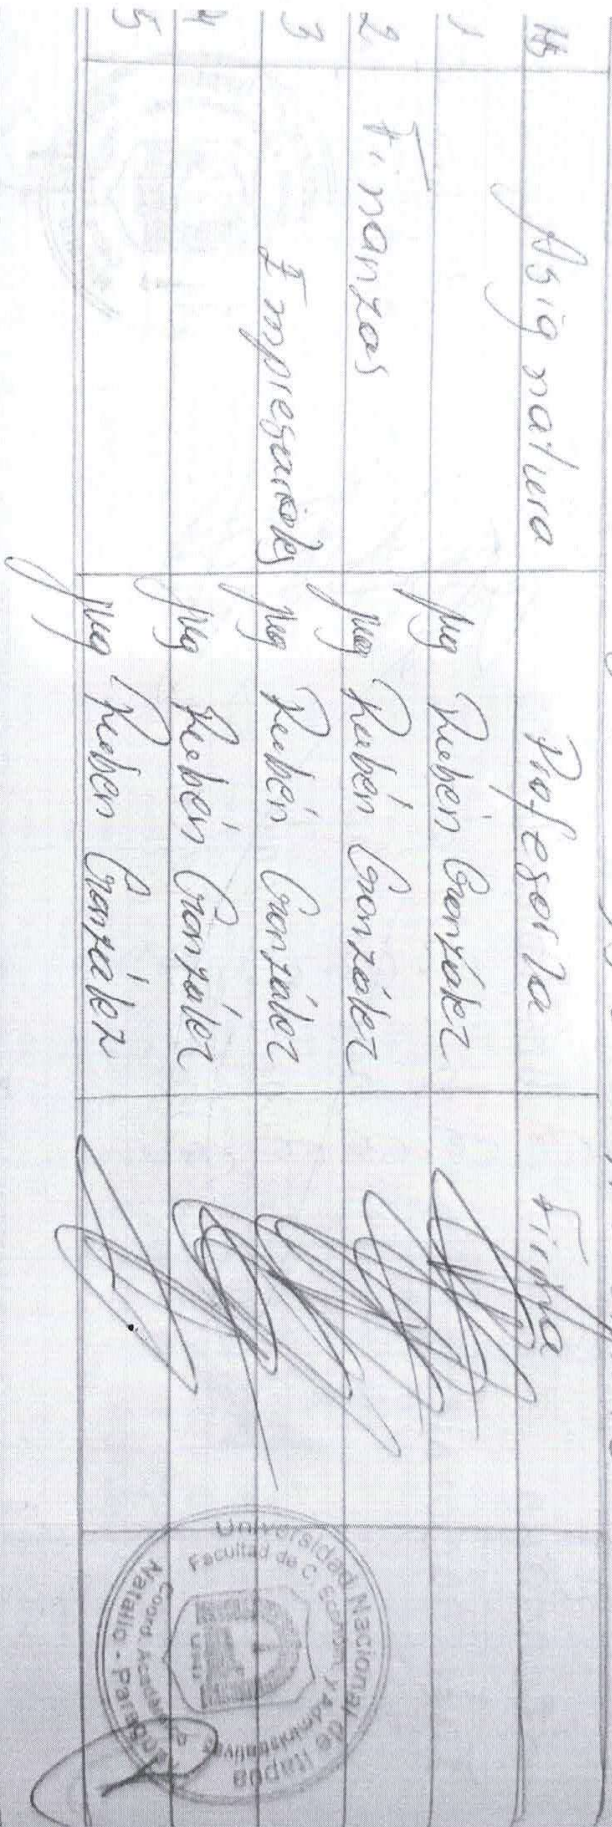 Hs Asignatura Profesor/a Firma
1 Mg Rubén González
2 Finanzas Mg Rubén González
3 Empresariales Mg Rubén González
4 Mg Rubén González
5 Mg Rubén González
Universidad Nacional de Itapúa
Facultad de C. Económ. y Administrativas
Coord. Académica
Natalio - Paraguay